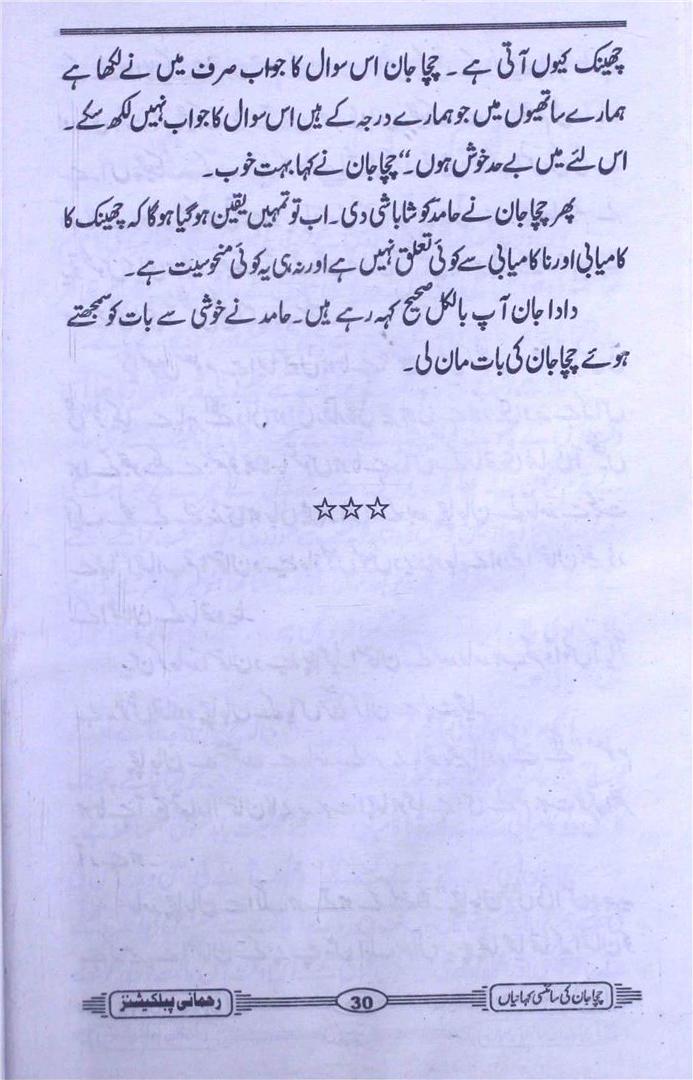 چھینک کیوں آتی ہے ۔ چچا جان اس سوال کا جواب صرف میں نے لکھا ہے
ہمارے ساتھیوں میں جو ہمارے درجہ کے ہیں اس سوال کا جواب نہیں لکھ سکے۔
اس لئے میں بے حد خوش ہوں۔‘‘ چچا جان نے کہا بہت خوب۔
پھر چچا جان نے حامد کو شاباشی دی۔ اب تو تمہیں یقین ہو گیا ہوگا کہ چھینک کا
کامیابی اور ناکامیابی سے کوئی تعلق نہیں ہے اور نہ ہی یہ کوئی منحوسیت ہے۔
دادا جان آپ بالکل صحیح کہہ رہے ہیں۔ حامد نے خوشی سے بات کو سمجھتے
ہوئے چچا جان کی بات مان لی۔
☆☆☆
چچا جان کی سائنسی کہانیاں
30
رحمانی پبلکیشنز